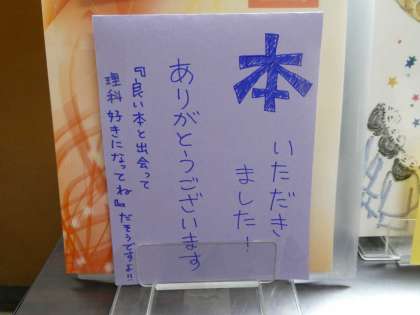 本
いただき
ました!
ありがとうございます
『良い本と出会って
理科好きになってね』だそうですよ!!